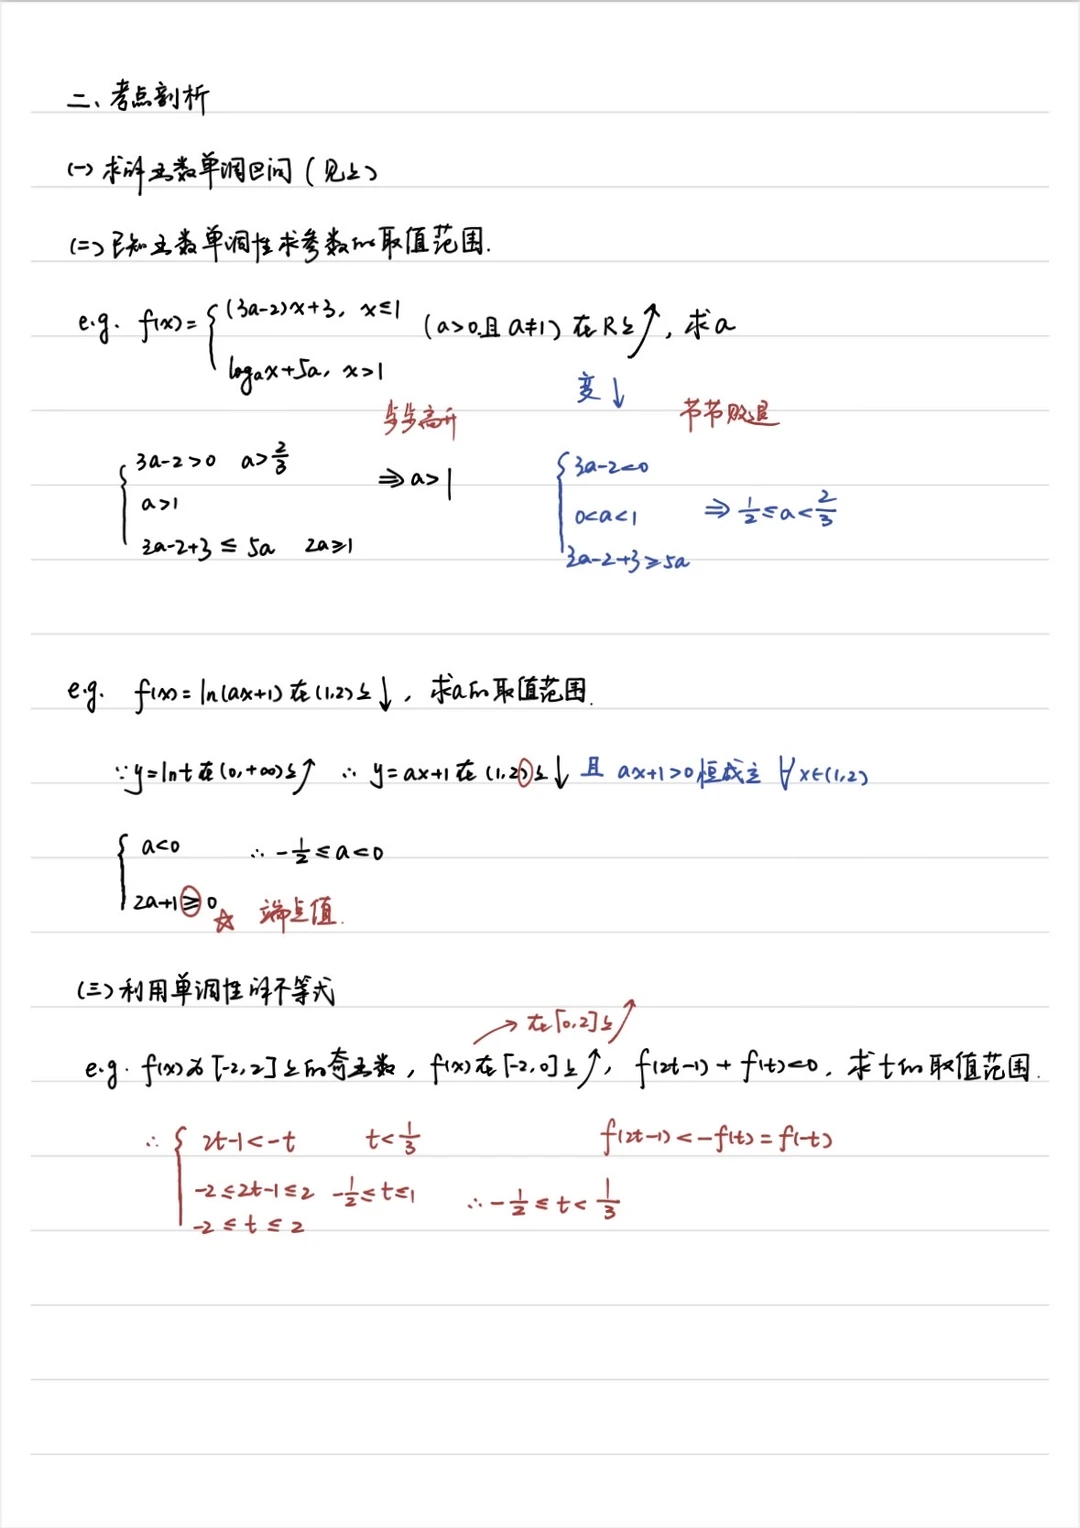 二、考点剖析
(一) 求解函数单调区间 (见上)
(二) 已知函数单调性求参数的取值范围.
e.g. f(x)= { (3a-2)x+3, x≤1 (a>0且a≠1) 在R上↗, 求a
logₐx+5a, x>1
变↓
步步高升 节节败退
{ 3a-2>0 a>2/3 ⇒ a>1
a>1
3a-2+3 ≤ 5a 2a≥1
{ 3a-2<0
0<a<1 ⇒ 1/2≤a<2/3
3a-2+3≥5a
e.g. f(x)=ln(ax+1)在(1,2)上↓, 求a的取值范围.
∵y=lnt在(0,+∞)上↗ ∴ y=ax+1在(1,2)上↓ 且 ax+1>0恒成立 ∀x∈(1,2)
{ a<0 ∴ -1/2≤a<0
2a+1≥0 ☆ 端点值.
(三)利用单调性解不等式
→在[0,2]上↗
e.g. f(x)为[-2,2]上的奇函数, f(x)在[-2,0]上↗, f(2t-1)+f(t)<0, 求t的取值范围.
∴ { 2t-1<-t t<1/3 f(2t-1)<-f(t)=f(-t)
-2≤2t-1≤2 -1/2≤t≤1 ∴-1/2≤t<1/3
-2≤t≤2